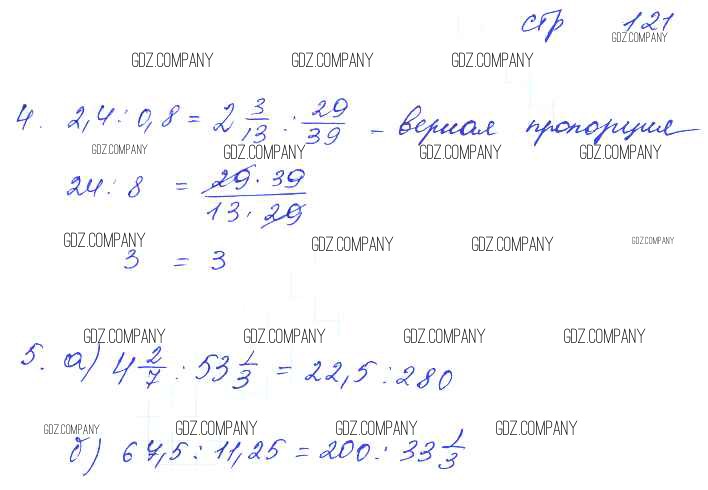 стр 121
GDZ.COMPANY
GDZ.COMPANY GDZ.COMPANY GDZ.COMPANY
4. 2,4 : 0,8 = 2 3/13 : 29/39 – верная пропорция
GDZ.COMPANY GDZ.COMPANY GDZ.COMPANY GDZ.COMPANY
24 : 8 = 29 · 39 / 13 · 29
GDZ.COMPANY GDZ.COMPANY GDZ.COMPANY GDZ.COMPANY
3 = 3
GDZ.COMPANY GDZ.COMPANY GDZ.COMPANY GDZ.COMPANY
5. а) 4 2/7 : 53 1/3 = 22,5 : 280
GDZ.COMPANY GDZ.COMPANY GDZ.COMPANY GDZ.COMPANY
б) 67,5 : 11,25 = 200 : 33 1/3